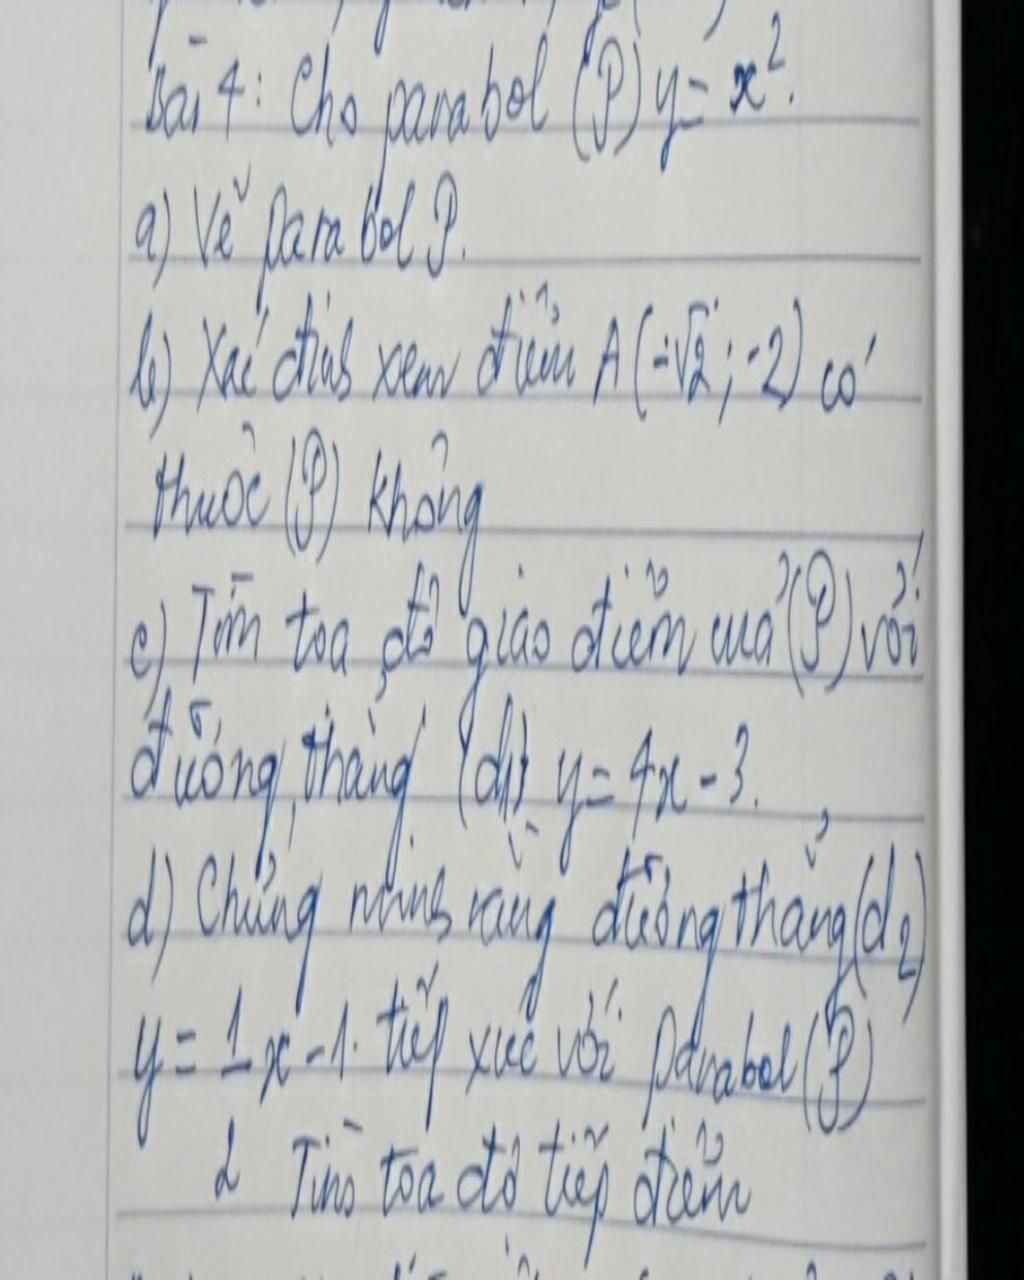 Bài 4: Cho parabol (P) y = x².
a) Vẽ parabol P.
b) Xác định xem điểm A (-√2; -2) có
thuộc (P) không
c) Tìm toạ độ giao điểm của (P) với
đường thẳng (d1) y = 4x - 3.
d) Chứng minh rằng đường thẳng (d2)
y = 1/2 x - 1. tiếp xúc với parabol (P)
Tìm toạ độ tiếp điểm